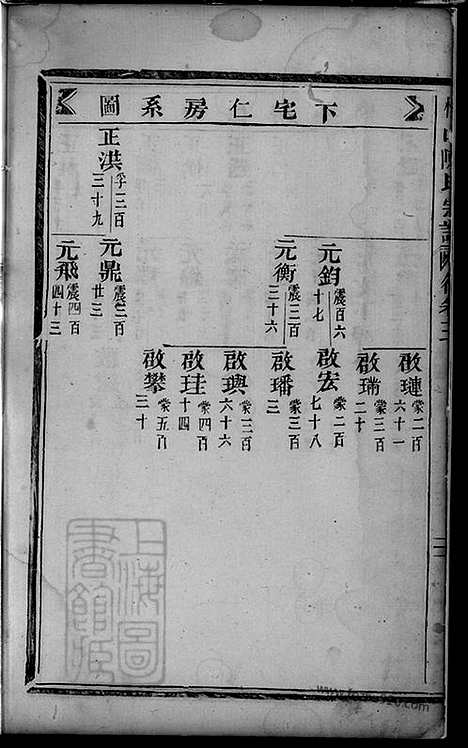 下宅仁房系圖
正洪 孚三百三十九
元鈞 震百六十七
元衡 震三百三十六
元鼎 震三百廿三
元飛 震四百四十三
啟璉 蒙二百六十一
啟瑞 蒙三百二十
啟宏 蒙二百七十八
啟璠 蒙三百三
啟璵 蒙三百六十六
啟珪 蒙四百十四
啟攀 蒙五百三十
上海圖書館藏